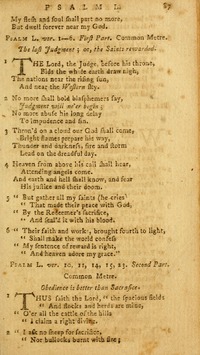 PSALM L. 87
My flesh and soul shall part no more,
But dwell forever near my God.
PSALM L. ver. 1—6. First Part. Common Metre.
The last Judgment; or, the Saints rewarded.
1 THE Lord, the Judge, before his throne,
Bids the whole earth draw nigh,
The nations near the rising sun,
And near the Western sky.
2 No more shall bold blasphemers say,
Judgment will ne'er begin;
No more abuse his long delay
To impudence and sin.
3 Thron'd on a cloud our God shall come,
Bright flames prepare his way,
Thunder and darkness, fire and storm
Lead on the dreadful day.
4 Heaven from above his call shall hear,
Attending angels come,
And earth and hell shall know, and fear
His justice and their doom.
5 "But gather all my saints (he cries)
"That made their peace with God,
"By the Redeemer's sacrifice,
"And seal'd it with his blood.
6 "Their faith and works, brought forth to light,
"Shall make the world confess
"My sentence of reward is right,
"And heaven adore my grace."
PSALM L. ver. 10, 11, 14, 15, 23. Second Part.
Common Metre.
Obedience is better than Sacrifice.
1 THUS saith the Lord, "the spacious fields
"And flocks and herds are mine,
"O'er all the cattle of the hills
"I claim a right divine.
2 "I ask no sheep for sacrifice,
"Nor bullocks burnt with fire;